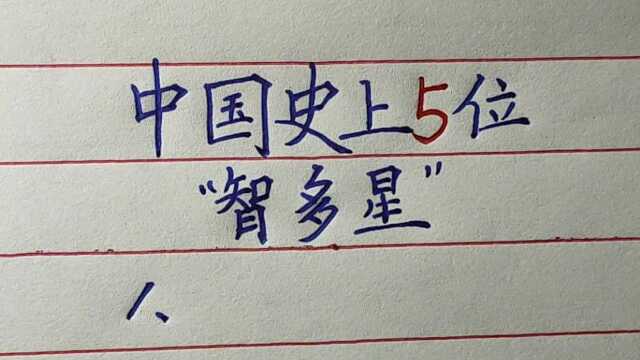 中国史上5位
“智多星”
人